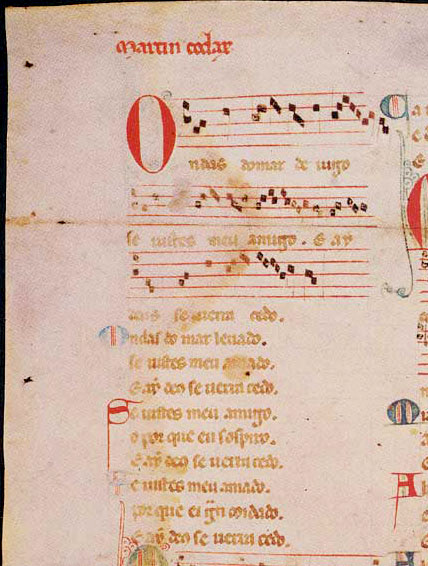 martin codax
Ondas do mar de uigo
se uistes meu amigo. E ay
deus se uerra cedo.
Ondas do mar leuado.
se uistes meu amado.
E ay deo se uerra cedo.
Se uistes meu amigo.
o por que eu sospiro.
E ay deo se uerra cedo.
Se uistes meu amado.
por que ei gn coidado.
E ay deo se uerra cedo.